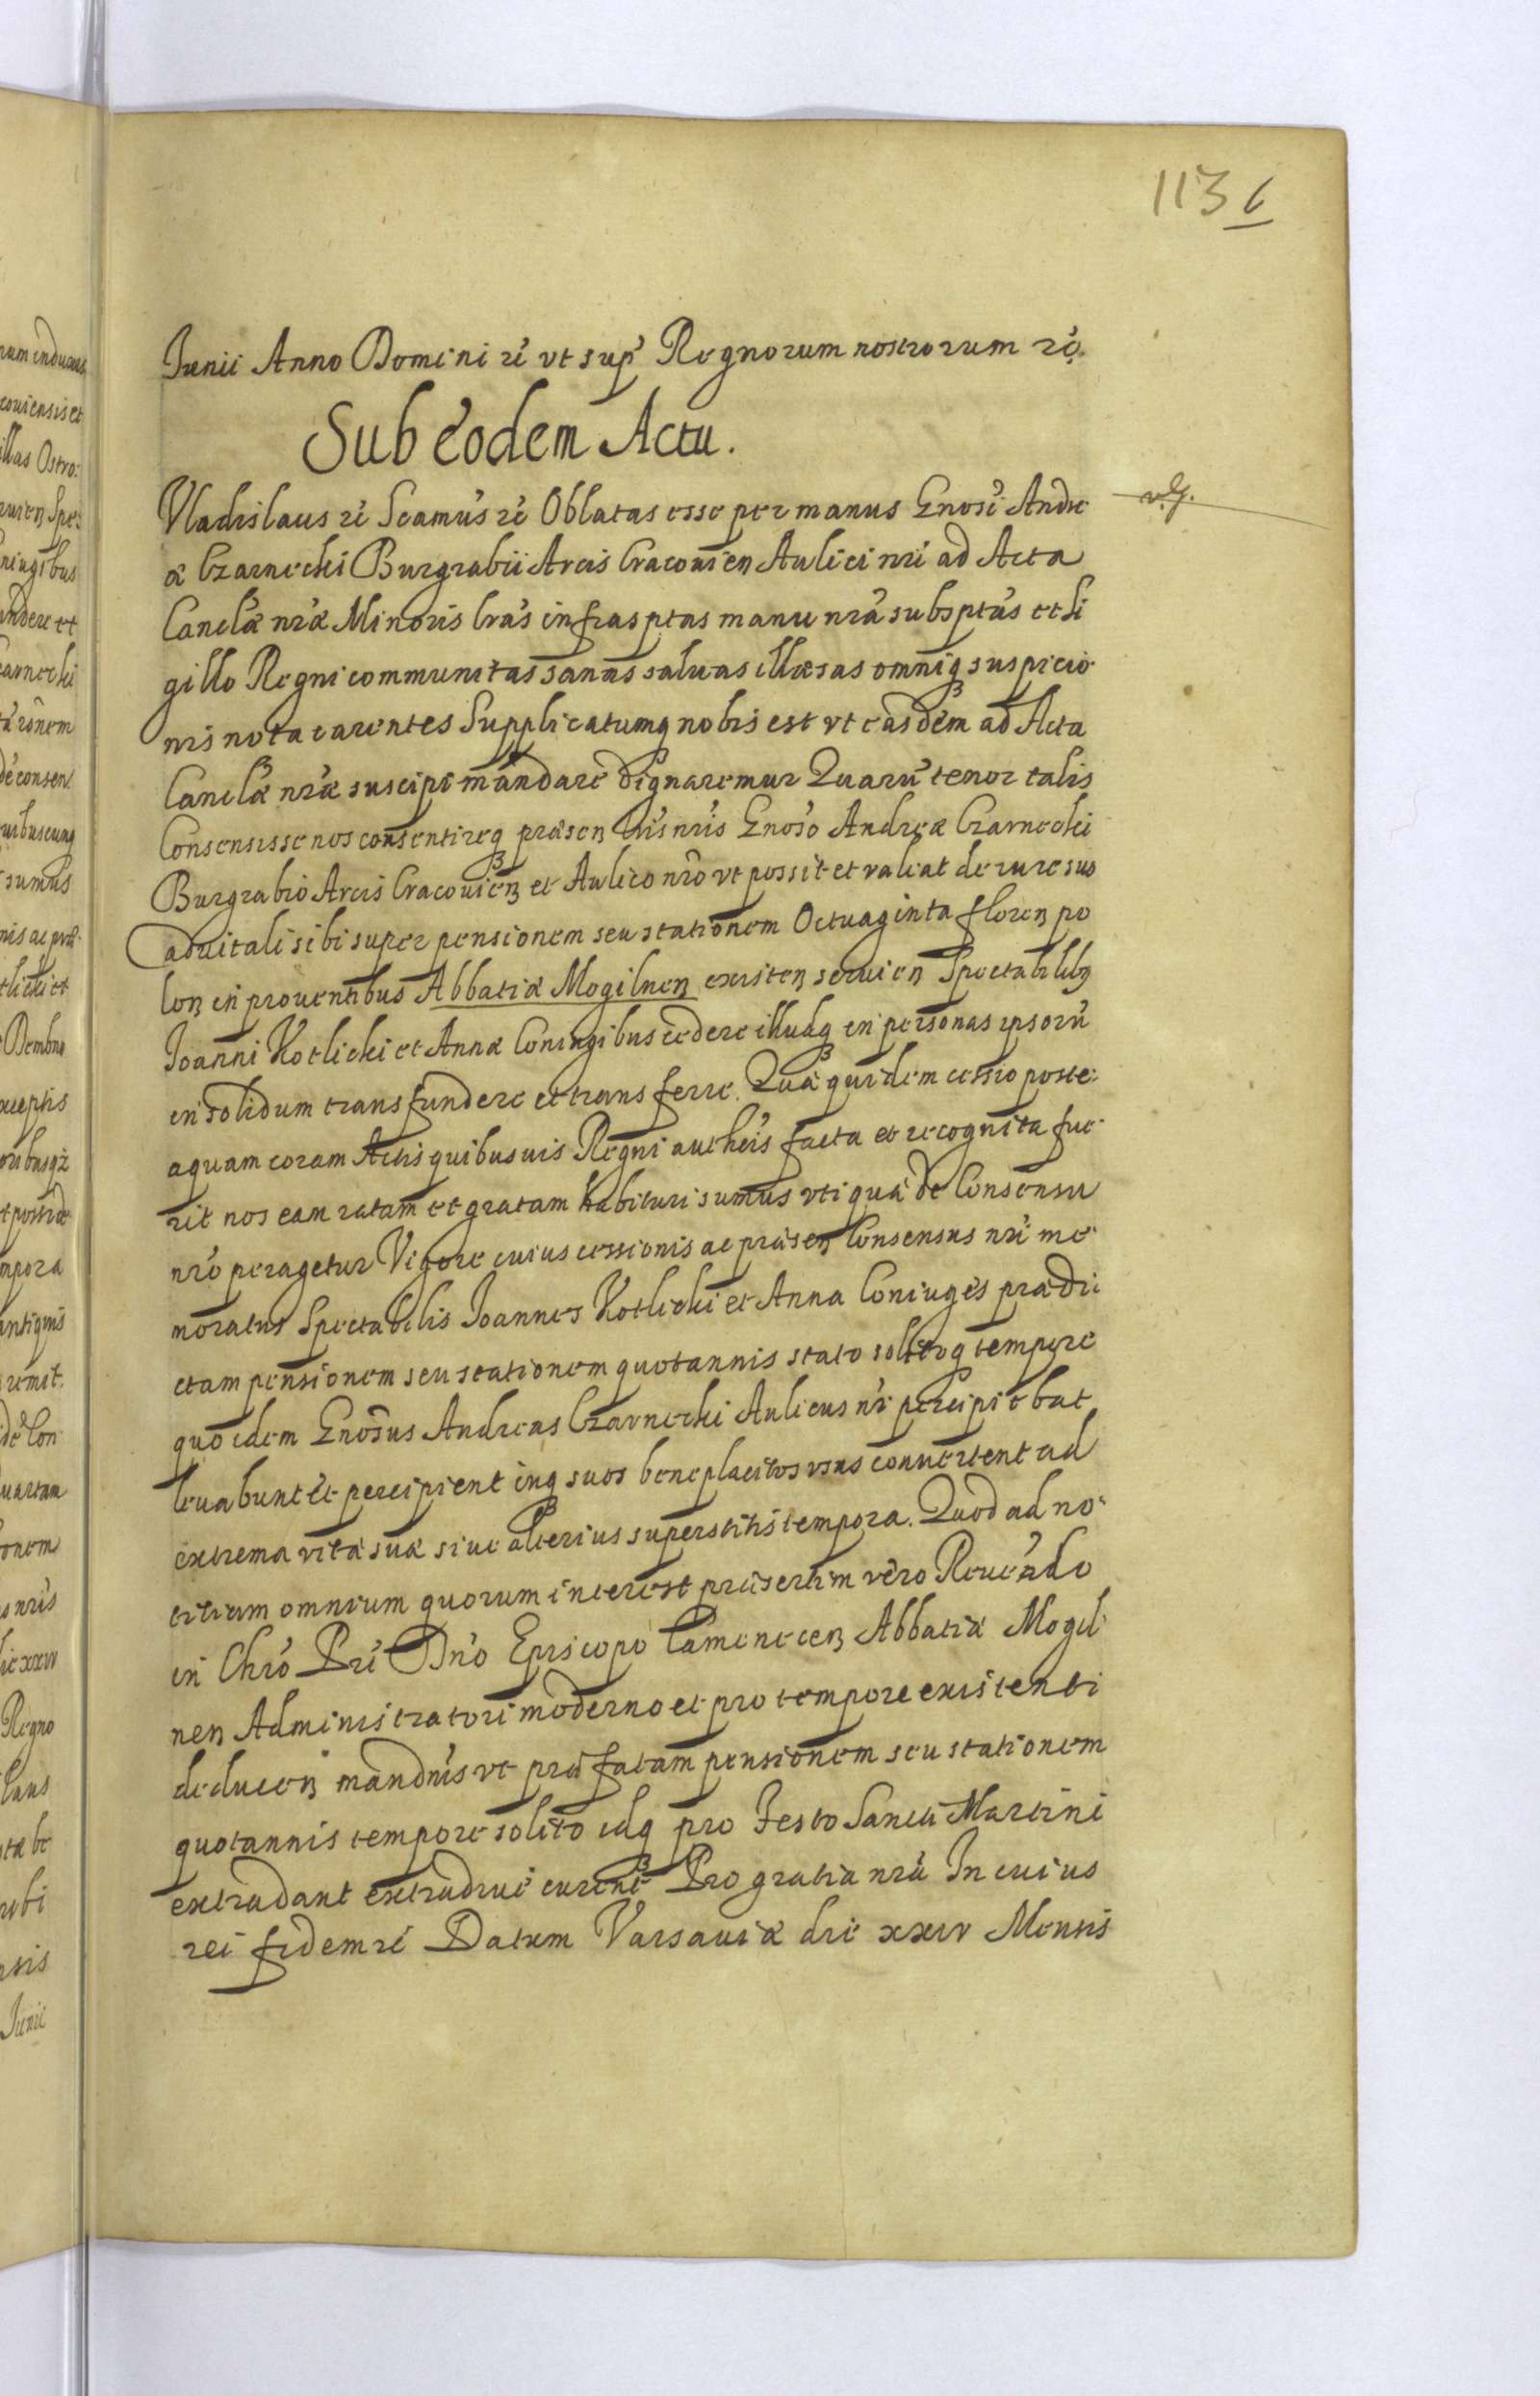 113 6
Junii Anno Domini rĕ vt sup' Regnorum nostrorum rĕ.
Sub eodem Actu.
Vladislaus rĕ Scamus rĕ Oblatas esse per manus Gnosi Andre
æ Czarnecki Burgrabii Arcis Cracouien Aulici nri ad Acta
Canclæ nræ Minoris lras infrasptas manu nra subsptas et si
gillo Regni communitas sanas saluas illæsas omniq suspicio
nis nota carentes Supplicatumq nobis est vt easdem ad Acta
Canclæ nræ suscipi mandare dignaremur Quaru tenor talis
Consensisse nos consentireq præsen lris nris Gnoso Andreæ Czarnecki
Burgrabio Arcis Cracouien et Aulico nro vt possit et valeat de iure suo
aduitali sibi super pensionem seu stationem Octuaginta floren po
lon in prouentibus Abbatiæ Mogilnen existen seruien Spectabilibq
Joanni Kotlicki et Annæ Coniugibus cedere illudq in personas ipsoru
in solidum transfundere et transferre. Quæ quidem cessio poste:
aquam coram Actis quibusuis Regni autheis facta et recognita fue
rit nos eam ratam et gratam habituri sumus vti quæ de Consensu
nro peragetur Vigore cuius cessionis ac præsen Consensus nri me
moratus Spectabilis Joannes Kotlicki et Anna Coniuges prædi
ctam pensionem seu stationem quotannis stato solitoq tempore
quo idem Gnosus Andreas Czarnecki Aulicus nr percipiebat
leuabunt et percipient inq suos beneplacitos vsus conuertent ad
extrema vitæ suæ siue alterius superstitis tempora. Quod ad no
titiam omnium quorum interest præsertim vero Reuerendo
in Chro Pri Dno Episcopo Camenecen Abbatiæ Mogil
nen Administratori moderno et pro tempore existenti
deducen mandnus vt præfatam pensionem seu stationem
quotannis tempore solito idq pro Festo Sancti Martini
extradant extradiue curent Pro gratia nra In cuius
rei fidem rĕ Datum Varsauiæ die xxiv Mensis